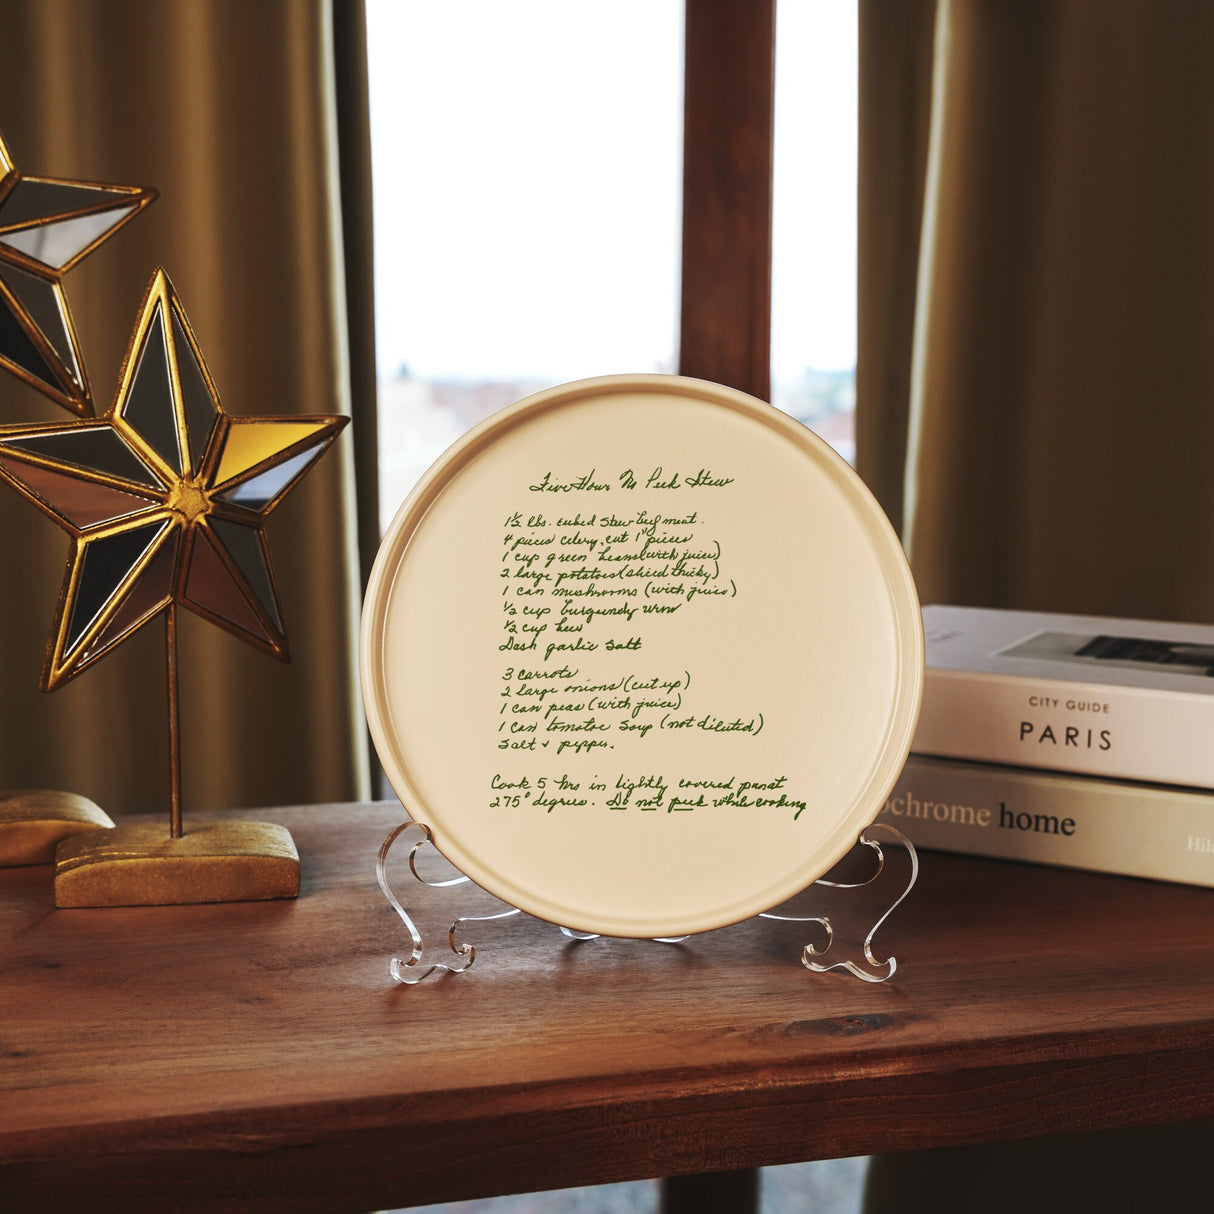 Five Hour No Peek Stew
1½ lbs. cubed stew beef meat.
4 pieces celery, cut 1" pieces
1 cup green beans (with juice)
2 large potatoes (sliced thickly)
1 can mushrooms (with juice)
½ cup burgundy wine
½ cup beer
Dash garlic salt
3 carrots
2 large onions (cut up)
1 can peas (with juice)
1 can tomatoe soup (not diluted)
salt + pepper.
Cook 5 hrs in tightly covered pan at
275° degrees. Do not peek while cooking
CITY GUIDE
PARIS
ochrome home
Hil